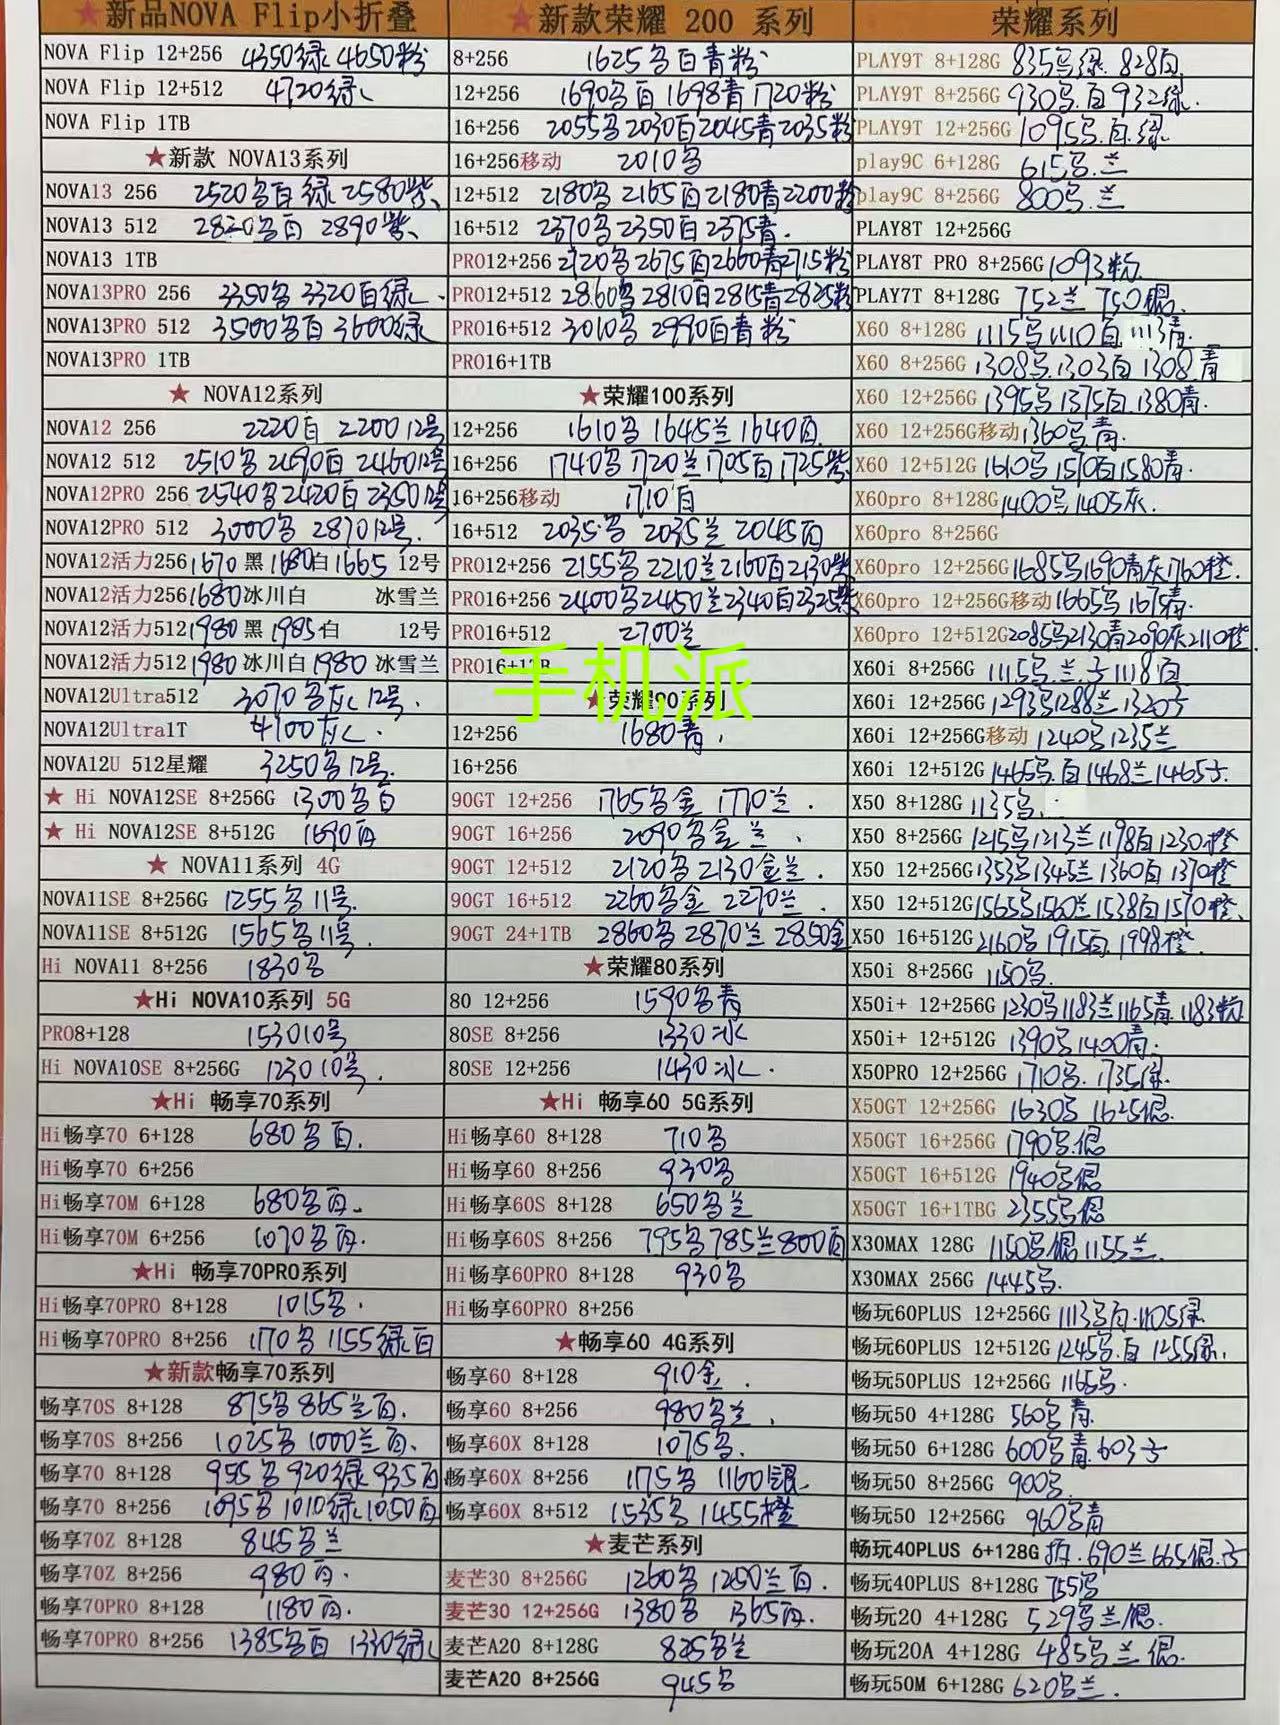 ★新品NOVA Flip小折叠
NOVA Flip 12+256 4350绿 4650粉
NOVA Flip 12+512 4720绿
NOVA Flip 1TB
★新款 NOVA13系列
NOVA13 256 2520 白 绿 2580紫
NOVA13 512 2820 白 2890紫
NOVA13 1TB
NOVA13PRO 256 3350 3320白绿
NOVA13PRO 512 3500 白 3600绿
NOVA13PRO 1TB
★ NOVA12系列
NOVA12 256 2220白 2200 12号
NOVA12 512 2510 2490白 2460 12号
NOVA12PRO 256 2540 2420白 2350 12号
NOVA12PRO 512 3000 2870 12号
NOVA12活力256 1670 黑 1680白 1665 12号
NOVA12活力256 1680 冰川白 冰雪兰
NOVA12活力512 1980 黑 1985白 12号
NOVA12活力512 1980 冰川白 1980 冰雪兰
NOVA12Ultra512 3070 灰 12号
NOVA12Ultra1T 4100灰
NOVA12U 512星耀 3250 12号
★ Hi NOVA12SE 8+256G 1300 白
★ Hi NOVA12SE 8+512G 1690白
★ NOVA11系列 4G
NOVA11SE 8+256G 1255 11号
NOVA11SE 8+512G 1565 11号
Hi NOVA11 8+256 1830
★Hi NOVA10系列 5G
PRO8+128 1530 10号
Hi NOVA10SE 8+256G 1230 10号
★Hi 畅享70系列
Hi畅享70 6+128 680 白
Hi畅享70 6+256
Hi畅享70M 6+128 680 白
Hi畅享70M 6+256 1070 白
★Hi 畅享70PRO系列
Hi畅享70PRO 8+128 1015
Hi畅享70PRO 8+256 1170 1155绿白
★新款畅享70系列
畅享70S 8+128 875 865兰白
畅享70S 8+256 1025 1000兰白
畅享70 8+128 955 920绿 935白
畅享70 8+256 1095 1010绿 1050白
畅享70Z 8+128 845 兰
畅享70Z 8+256 980白
畅享70PRO 8+128 1180白
畅享70PRO 8+256 1385 白 1330绿
★新款荣耀 200 系列
8+256 1625 白青粉
12+256 1690 白 1698青 1720粉
16+256 2055 2030白 2045青 2035粉
16+256移动 2010
12+512 2180 2165白 2180青 2200粉
16+512 2370 2350白 2375青
PRO12+256 2720 2675白 2660青 2715粉
PRO12+512 2860 2810白 2815青 2825粉
PRO16+512 3010 2990白青粉
PRO16+1TB
★荣耀100系列
12+256 1610 1645兰 1640白
16+256 1740 1720兰 1705白 1725紫
16+256移动 1710白
16+512 2035 2035兰 2045白
PRO12+256 2155 2210兰 2160白 2130紫
PRO16+256 2400 2450兰 2340白 2325紫
PRO16+512 2700兰
PRO16+1TB
手机派
★荣耀90系列
12+256 1680青
16+256
90GT 12+256 1765 金 1770兰
90GT 16+256 2090 金 兰
90GT 12+512 2120 2130金兰
90GT 16+512 2260 金 2270兰
90GT 24+1TB 2860 2870兰 2850金
★荣耀80系列
80 12+256 1590 青
80SE 8+256 1330冰
80SE 12+256 1430冰
★Hi 畅享60 5G系列
Hi畅享60 8+128 710
Hi畅享60 8+256 930
Hi畅享60S 8+128 650 兰
Hi畅享60S 8+256 795 785兰 800白
Hi畅享60PRO 8+128 930
Hi畅享60PRO 8+256
★畅享60 4G系列
畅享60 8+128 910金
畅享60 8+256 980 兰
畅享60X 8+128 1075
畅享60X 8+256 1175 1160银
畅享60X 8+512 1535 1455橙
★麦芒系列
麦芒30 8+256G 1260 1250兰白
麦芒30 12+256G 1380 1365白
麦芒A20 8+128G 825 兰
麦芒A20 8+256G 945
荣耀系列
PLAY9T 8+128G 835 绿 828白
PLAY9T 8+256G 930 白 932绿
PLAY9T 12+256G 1095 白 绿
play9C 6+128G 615 兰
play9C 8+256G 800 兰
PLAY8T 12+256G
PLAY8T PRO 8+256G 1093粉
PLAY7T 8+128G 752兰 750银
X60 8+128G 1115 1110白 1113青
X60 8+256G 1308 1303白 1308青
X60 12+256G 1395 1375白 1380青
X60 12+256G移动 1360 青
X60 12+512G 1610 1570白 1580青
X60pro 8+128G 1400 1405灰
X60pro 8+256G
X60pro 12+256G 1685 1690青灰 1760橙
X60pro 12+256G移动 1665 1675青
X60pro 12+512G 2085 2130青 2090灰 2110橙
X60i 8+256G 1115 兰 1118白
X60i 12+256G 1293 1288兰 1320
X60i 12+256G移动 1240 1235兰
X60i 12+512G 1465 白 1468兰 1465
X50 8+128G 1135
X50 8+256G 1215 1213兰 1198白 1230橙
X50 12+256G 1353 1345兰 1360白 1370橙
X50 12+512G 1565 1560兰 1538白 1570橙
X50 16+512G 2160 1915白 1998橙
X50i 8+256G 1150
X50i+ 12+256G 1230 1183兰 1165青 1183粉
X50i+ 12+512G 1390 1400青
X50PRO 12+256G 1710 1735绿
X50GT 12+256G 1630 1625银
X50GT 16+256G 1790 银
X50GT 16+512G 1940 银
X50GT 16+1TBG 2355 银
X30MAX 128G 1150 银 1155兰
X30MAX 256G 1445
畅玩60PLUS 12+256G 1113 白 1105绿
畅玩60PLUS 12+512G 1245 白 1255绿
畅玩50PLUS 12+256G 1165
畅玩50 4+128G 560 青
畅玩50 6+128G 600 青 603
畅玩50 8+256G 900
畅玩50 12+256G 960 青
畅玩40PLUS 6+128G 690兰 665银
畅玩40PLUS 8+128G 755
畅玩20 4+128G 529 兰 银
畅玩20A 4+128G 485 兰 银
畅玩50M 6+128G 620 兰